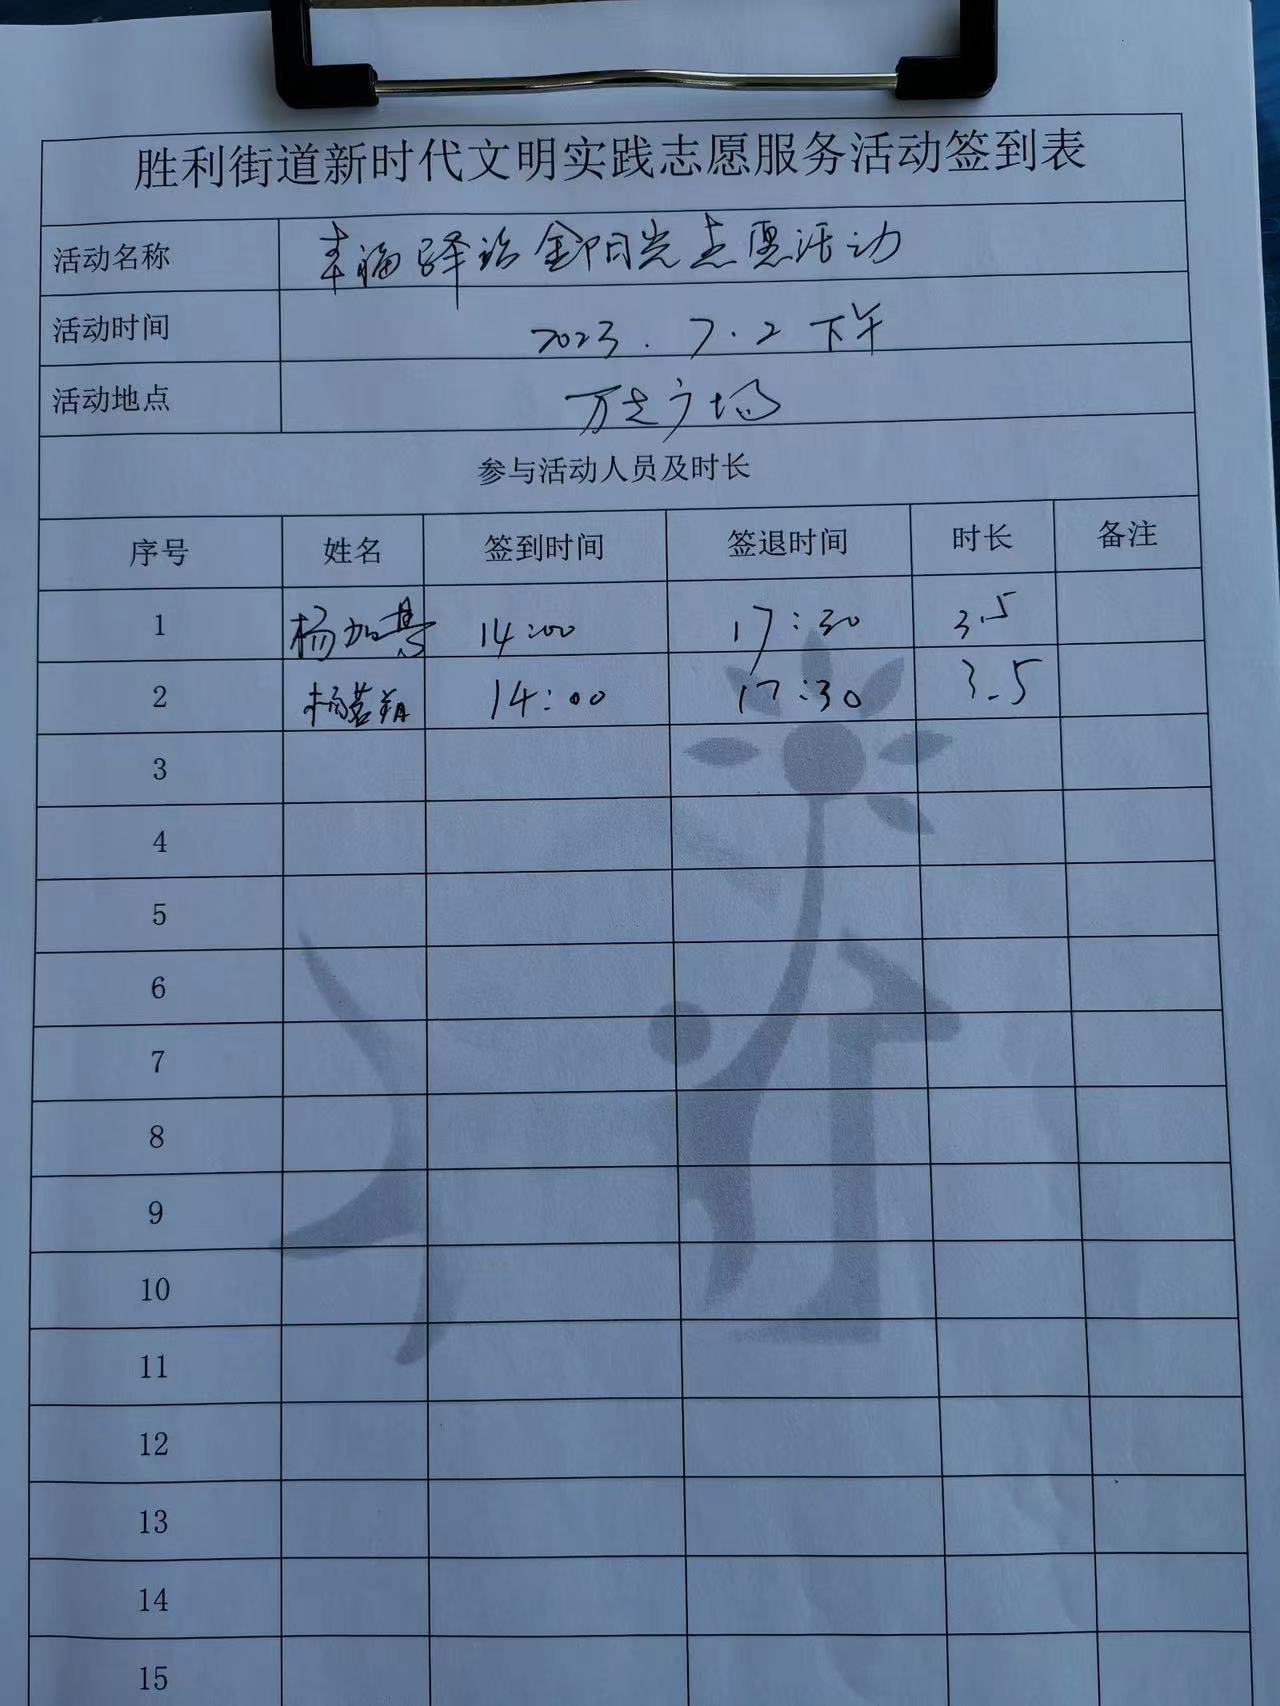 胜利街道新时代文明实践志愿服务活动签到表
活动名称 幸福驿站 金阳光志愿活动
活动时间 2023.7.2 下午
活动地点 万达广场
参与活动人员及时长
序号 姓名 签到时间 签退时间 时长 备注
1 杨加 14:00 17:30 3.5
2 杨茗 14:00 17:30 3.5
3
4
5
6
7
8
9
10
11
12
13
14
15